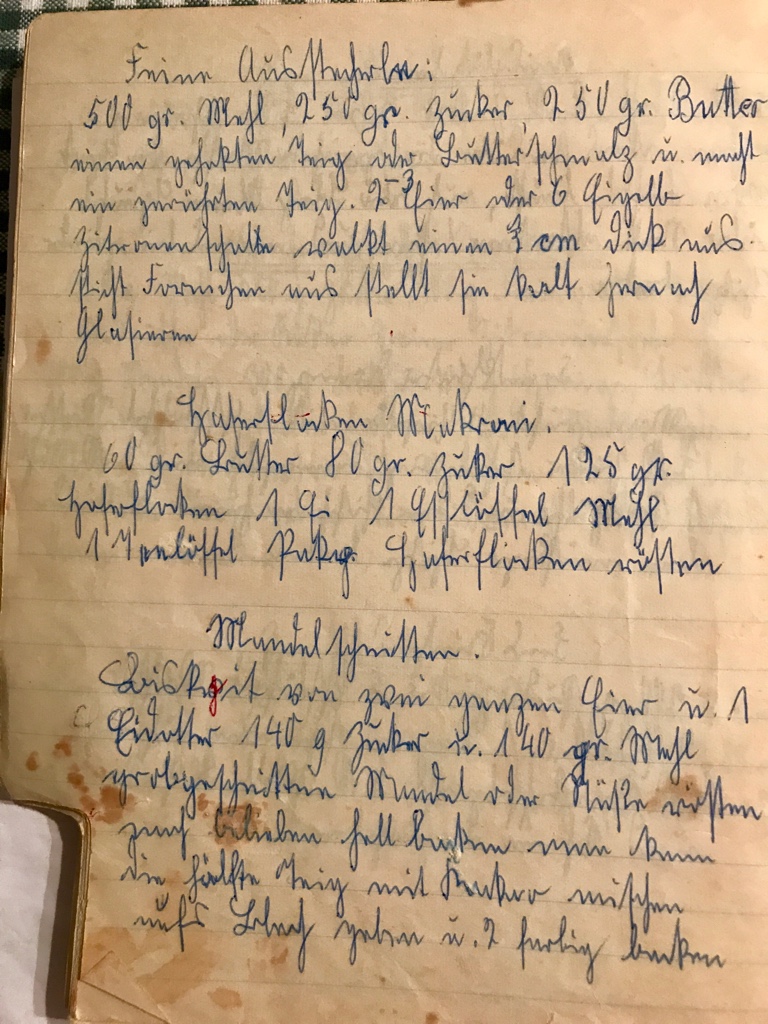 Feine Ausstecherle:
500 gr. Mehl, 250 gr. Zucker, 250 gr. Butter
einen gehakten Teig oder Butterschmalz u. macht
ein gerührten Teig. 2-3 Eier oder 6 Eigelb
Zitronenschalle walkt einen 1 cm dick aus.
sticht Formchen aus stellt sie kalt hernach
Glasieren
Haferflocken Makron.
60 gr. Butter 80 gr. Zuker 125 gr.
Haferflocken 1 Ei 1 Esslöffel Mehl
1 Teelöffel Haferflocken rösten
Mandelschnitten.
Biskuit von zwei ganzen Eier u. 1
Eidotter 140 g Zucker u. 140 gr. Mehl
grobgeschnittene Mandel oder Nüße rösten
nach belieben hell backen man kann
die hälfte Teig mit Kakao mischen
aufs Blech geben u. 2 farbig backen